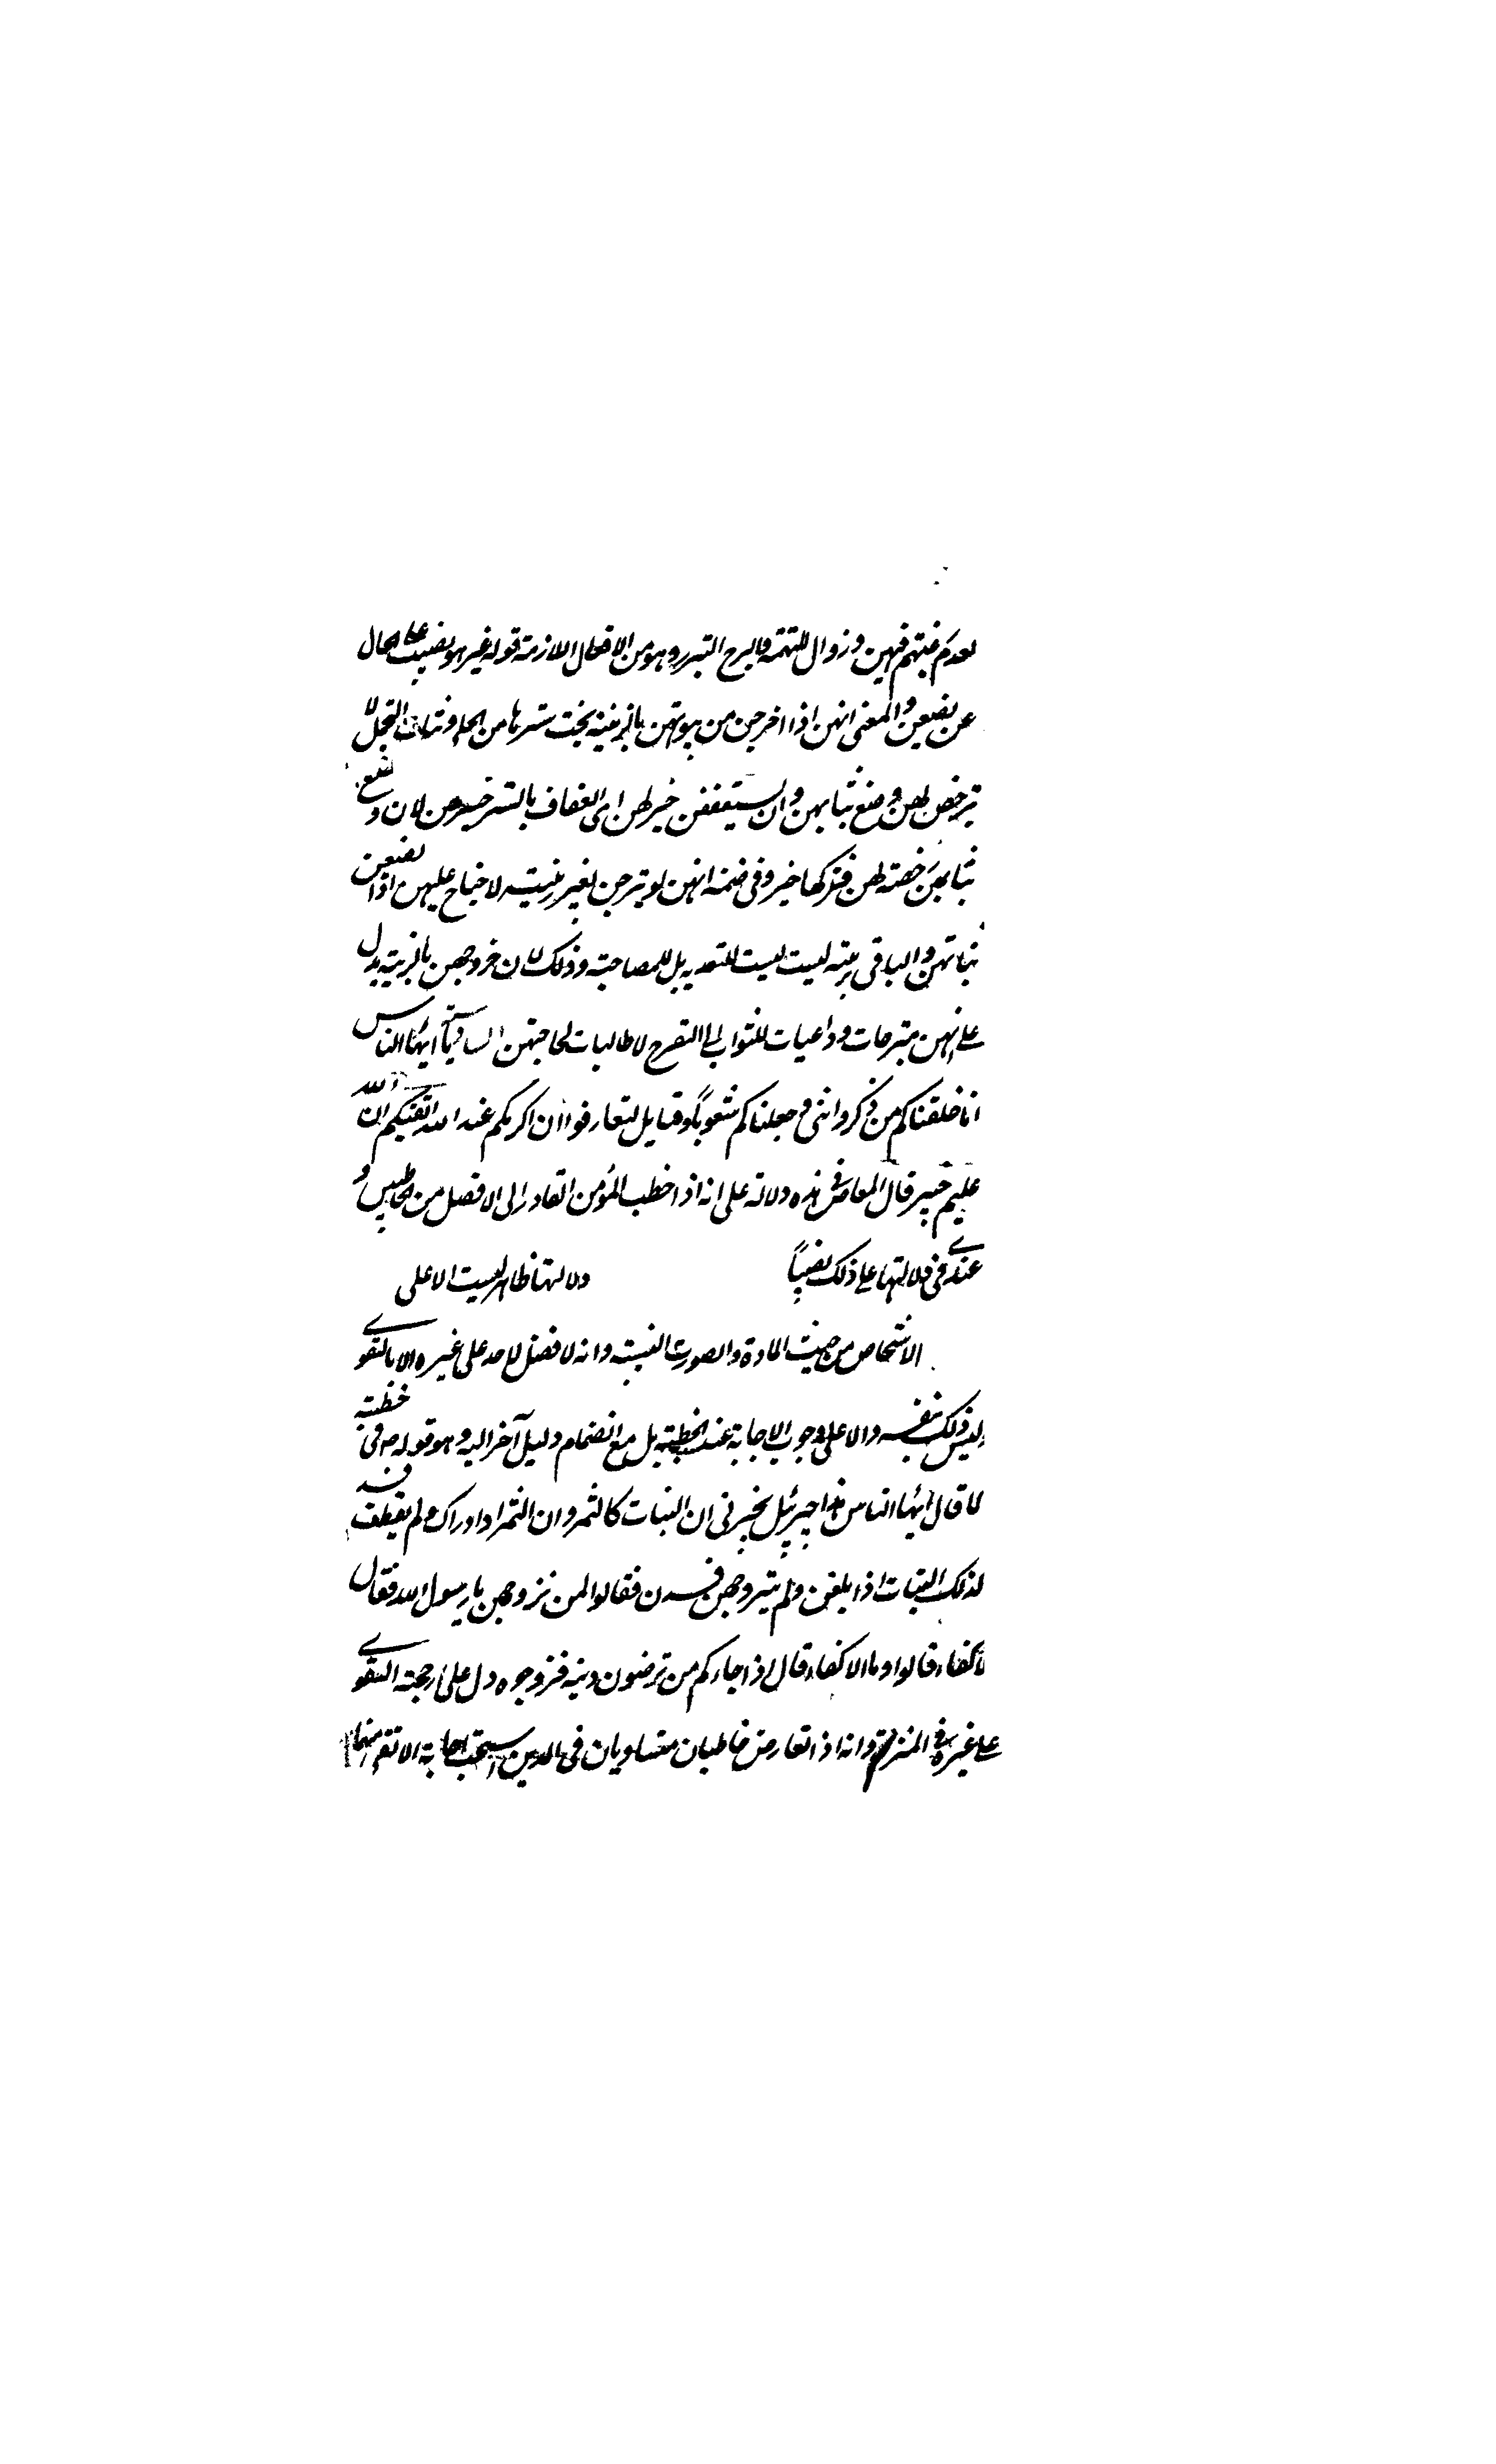 لعدم رغبتهم فيهن وزوال التهمة والبرج التبرر وهو من الافعال اللازمة قوله غير هو بنصب على الحال
عن يضعن والمعنى انهن اذا اخرجن من بيوتهن بالزينة تحت سترها من الحلي وثياب التجمل لا
ترخص لهن وضع ثيابهن وان يستعففن خير لهن اى العفاف بالتستر خير لهن لان وضع
ثيابهن رخصة لهن فتركها خير وفى ضمنه انهن لو تبرجن بغير زينة لا جناح عليهن اذا يضعن
ثيابهن والباقى بزينة ليست ليست للتعدية بل للمصاحبة وذلك لان خروجهن بالزينة يدل
على انهن متبرجات وداعيات للشواب الى التفرج لا طالبات لحاجتهن السادسة يا ايها الناس
انا خلقناكم من ذكر وانثى وجعلناكم شعوباً وقبايل لتعارفوا ان اكرمكم عند الله اتقيكم ان الله
عليم خبير قال المعاصر فى هذه دلالة على انه اذا خطب المؤمن القادر الى الافضل من الخاطبين و
عندى فى دلالتها على ذلك نصيباً دلالتها ظاهر ليست الا على
الاشخاص من حيث المادة والصورة النسبية وانه لا فضل لاحد على غيره الا بالتقوى
وليس ذلك بنفسه دالا على وجوب الاجابة عند الخطبة بل مع انضمام دليل آخر اليه وهو قوله ص فى خطبة
لا قال ايها الناس هذا جبرئيل يخبرنى ان البنات كالثمر وان الثمر اذا ادراك ولم يقطف فسد
لذلك البنات اذا بلغن ولم يتزوجهن فسدن فقالوا لمن نزوجهن يا رسول الله فقال
لاكفاء قالوا وما الاكفاء قال اذا جاءكم من ترضون دينه فزوجوه دل على ارجحية التقوى
على غيره فى المنزلة وانه اذا تعارض خاطبان متساويان فى الدين استحب اجابة الاتقى منهما